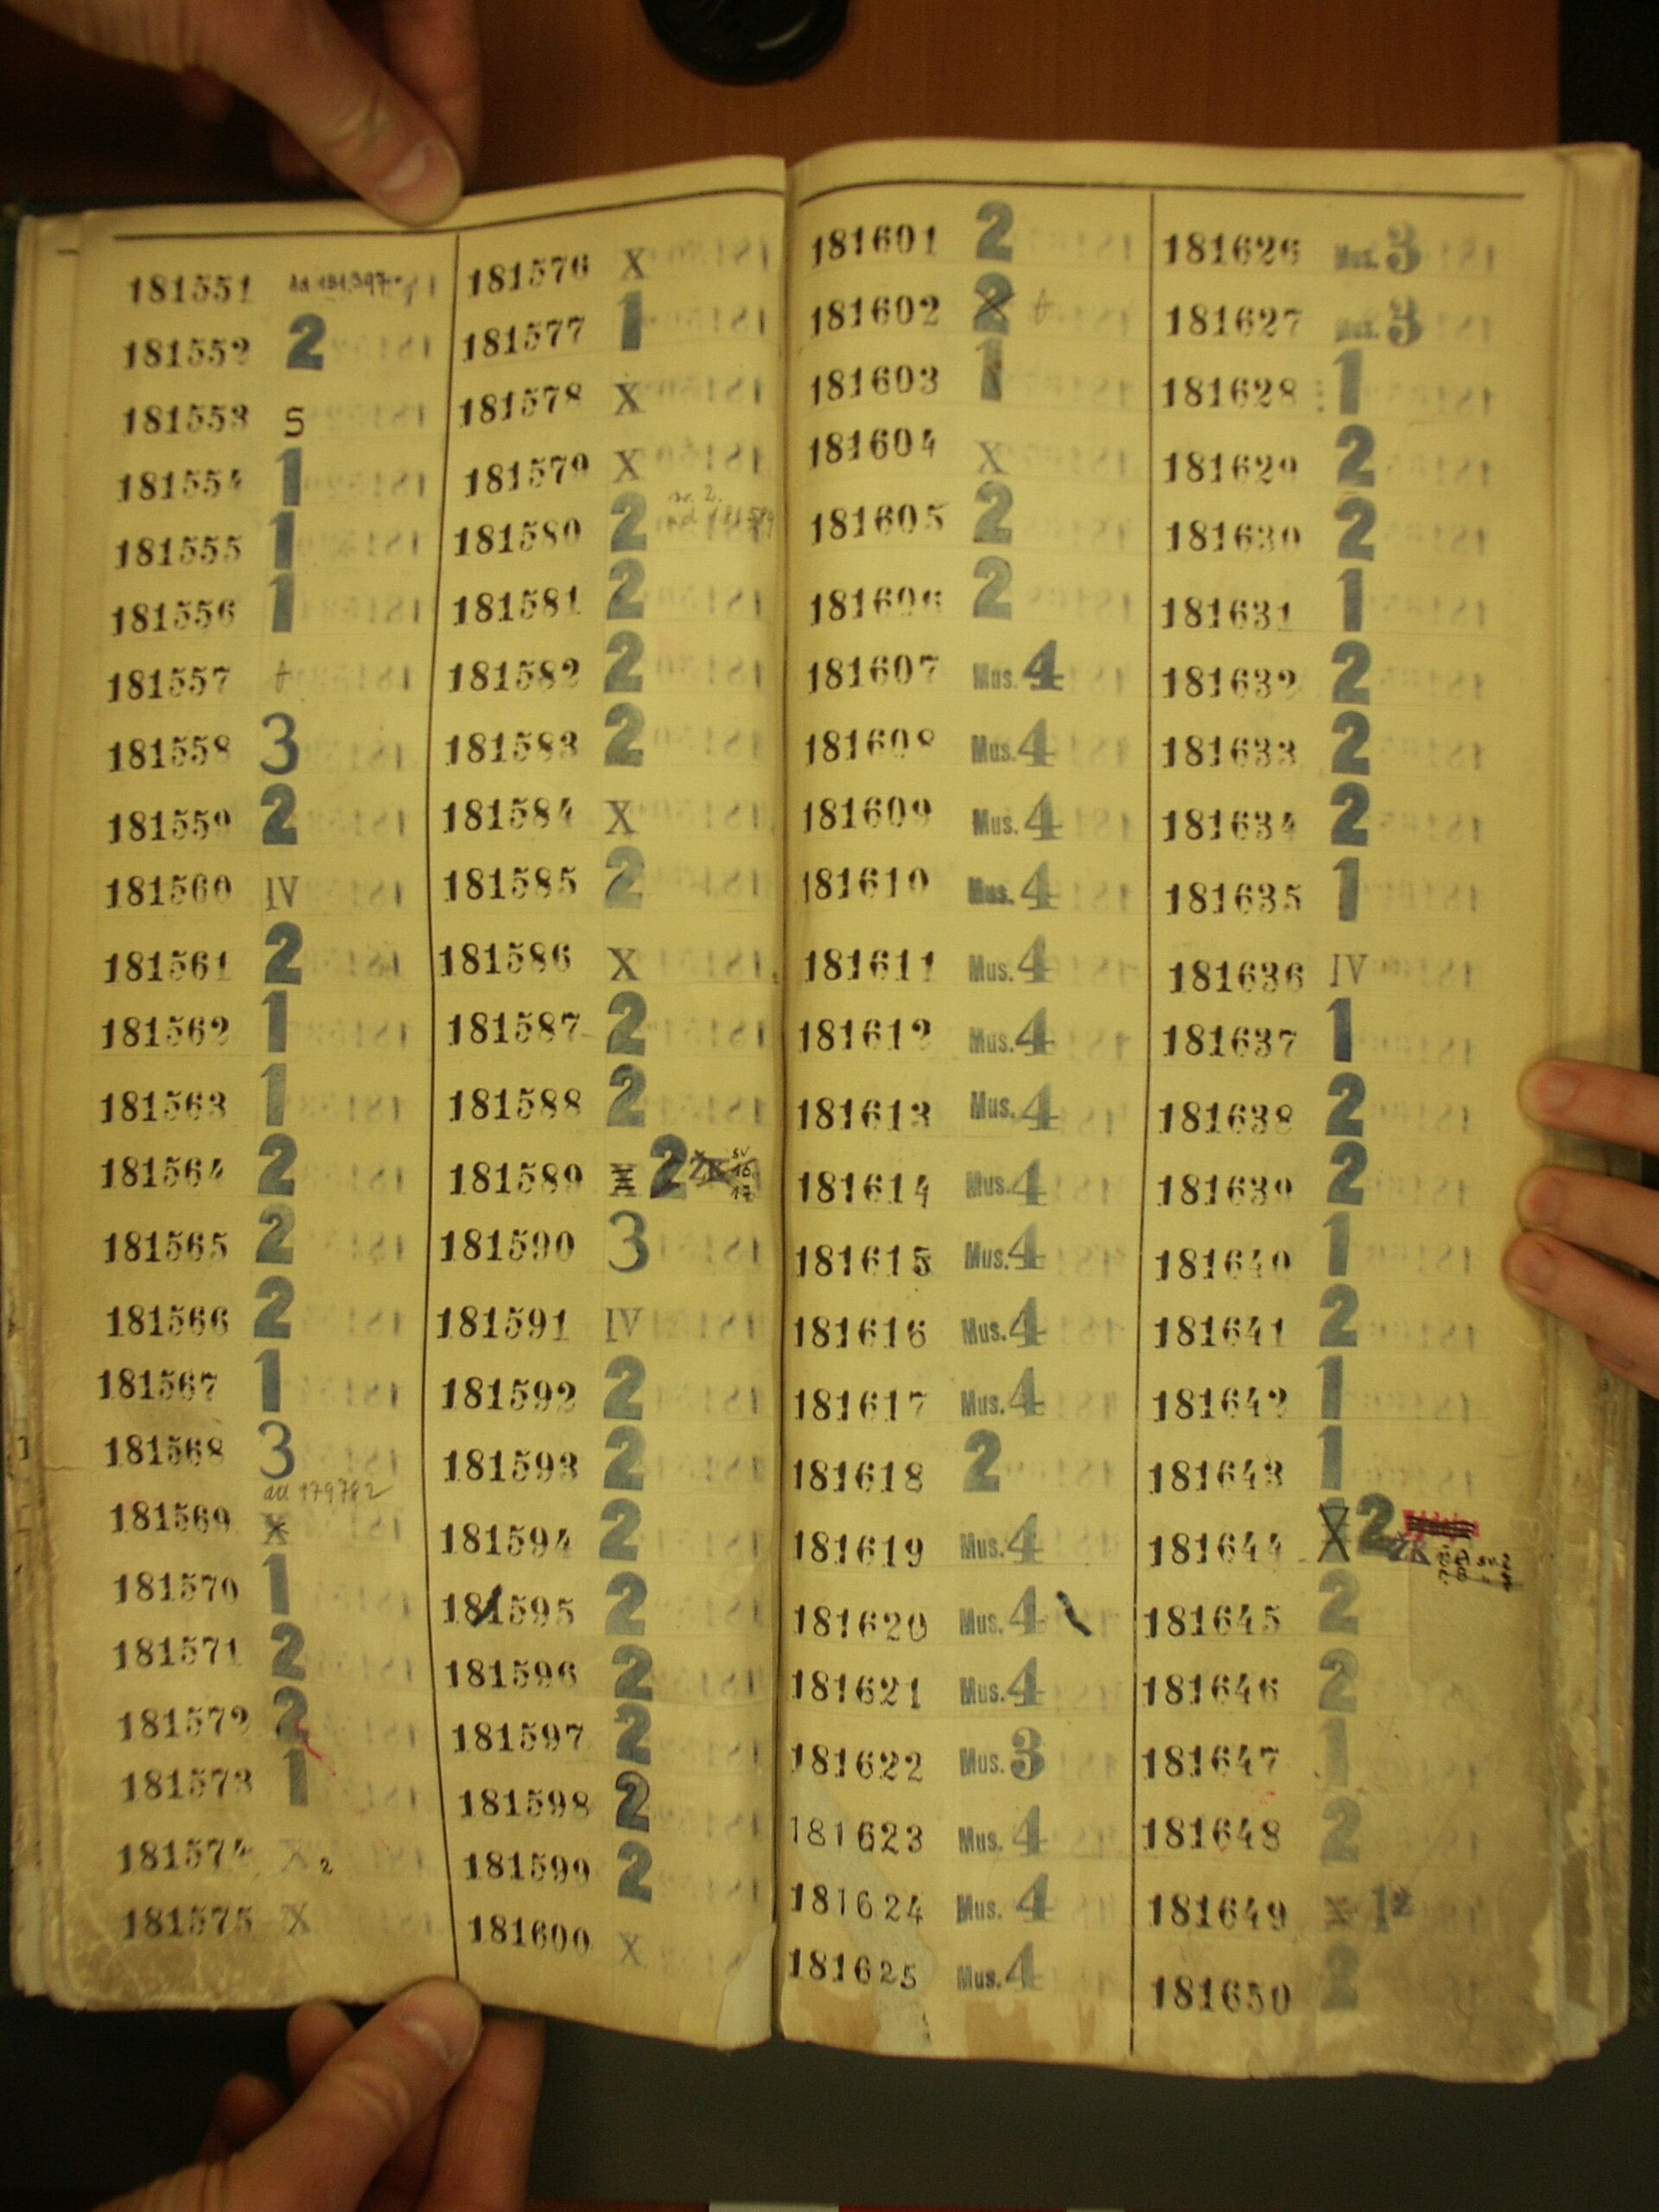 181551 ad 181597
181552 2
181553 S
181554 1
181555 1
181556 1
181557 t
181558 3
181559 2
181560 IV
181561 2
181562 1
181563 1
181564 2
181565 2
181566 2
181567 1
181568 3
ad 179782
181569 X
181570 1
181571 2
181572 2
181573 1
181574 X 2
181575 X
181576 X
181577 1
181578 X
181579 X
181580 2
181581 2
181582 2
181583 2
181584 X
181585 2
181586 X
181587 2
181588 2
181589 X 2
181590 3
181591 IV
181592 2
181593 2
181594 2
181595 2
181596 2
181597 2
181598 2
181599 2
181600 X
181601 2
181602 2 t
181603 1
181604 X
181605 2
181606 2
181607 Mus. 4
181608 Mus. 4
181609 Mus. 4
181610 Mus. 4
181611 Mus. 4
181612 Mus. 4
181613 Mus. 4
181614 Mus. 4
181615 Mus. 4
181616 Mus. 4
181617 Mus. 4
181618 2
181619 Mus. 4
181620 Mus. 4
181621 Mus. 4
181622 Mus. 3
181623 Mus. 4
181624 Mus. 4
181625 Mus. 4
181626 Mus. 3
181627 Mus. 3
181628 1
181629 2
181630 2
181631 1
181632 2
181633 2
181634 2
181635 1
181636 IV
181637 1
181638 2
181639 2
181640 1
181641 2
181642 1
181643 1
181644 X 2
181645 2
181646 2
181647 1
181648 2
181649 X 1
181650 2